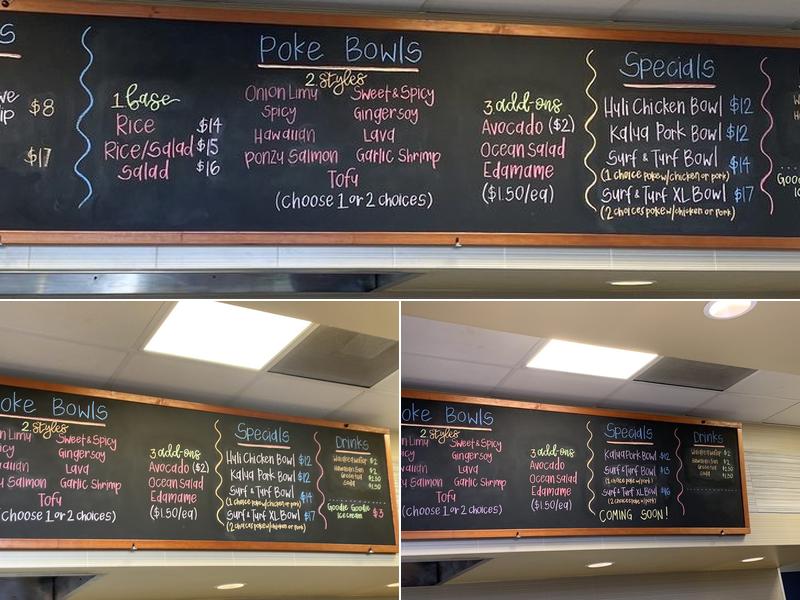 $8
$17
1 base
Rice $14
Rice/Salad $15
Salad $16
Poke Bowls
2 Styles
Onion Limu Sweet & Spicy
Spicy Ginger soy
Hawaiian Lava
Ponzu Salmon Garlic Shrimp
Tofu
(choose 1 or 2 choices)
3 add-ons
Avocado ($2)
Ocean Salad
Edamame
($1.50/ea)
Specials
Huli Chicken Bowl $12
Kalua Pork Bowl $12
Surf & Turf Bowl $14
(1 choice poke w/chicken or pork)
Surf & Turf XL Bowl $17
(2 choices poke w/chicken or pork)
oke Bowls
2 Styles
Sweet & Spicy
Ginger soy
Lava
Salmon Garlic Shrimp
Tofu
choose 1 or 2 choices)
3 add-ons
Avocado ($2)
Ocean Salad
Edamame
($1.50/ea)
Specials
Huli Chicken Bowl $12
Kalua Pork Bowl $12
Surf & Turf Bowl $14
(1 choice poke w/chicken or pork)
Surf & Turf XL Bowl $17
(2 choices poke w/chicken or pork)
Drinks
Goodie Goodie
ice cream $3
oke Bowls
2 Styles
Sweet & Spicy
Ginger soy
Lava
Salmon Garlic Shrimp
Tofu
choose 1 or 2 choices)
3 add-ons
Avocado
Ocean Salad
Edamame
($1.50/ea)
Specials
Kalua Pork Bowl $12
Surf & Turf Bowl $13
(1 choice poke w/pork)
Surf & Turf XL Bowl
(2 choices poke w/pork)
COMING SOON!
Drinks